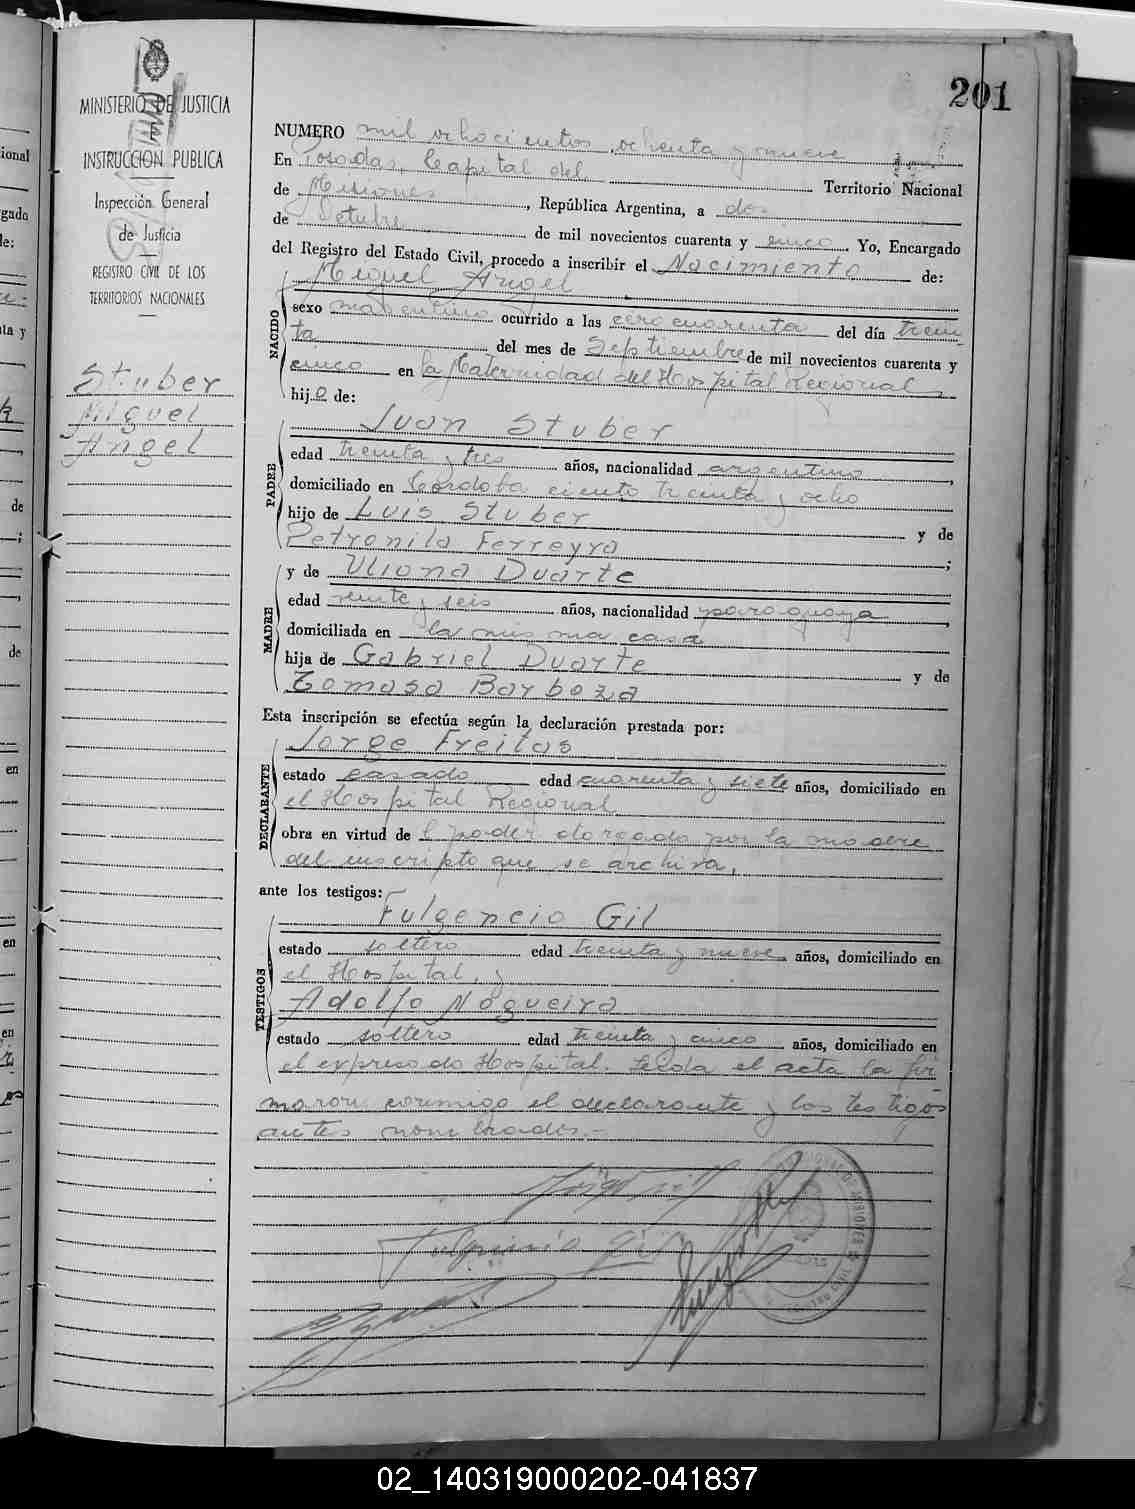 201
MINISTERIO DE JUSTICIA
E
INSTRUCCION PUBLICA
Inspección General
de Justicia
REGISTRO CIVIL DE LOS
TERRITORIOS NACIONALES
Stuber
Miguel
Angel
NUMERO mil ochocientos ochenta y nueve
En Posadas, Capital del Territorio Nacional
de Misiones, República Argentina, a dos
de Octubre de mil novecientos cuarenta y cinco. Yo, Encargado
del Registro del Estado Civil, procedo a inscribir el Nacimiento de:
Miguel Angel
NACIDO
sexo masculino ocurrido a las cero cuarenta del día trein
ta del mes de Septiembre de mil novecientos cuarenta y
cinco en la Maternidad del Hospital Regional
hijo de:
Juan Stuber
PADRE
edad treinta y tres años, nacionalidad argentino,
domiciliado en Córdoba ciento treinta y ocho
hijo de Luis Stuber y de
Petronila Ferreyra;
y de Uliona Duarte
MADRE
edad veinte y seis años, nacionalidad paraguaya,
domiciliada en la misma casa
hija de Gabriel Duarte y de
Tomasa Barboza
Esta inscripción se efectúa según la declaración prestada por:
Jorge Freitas
DECLARANTE
estado casado edad cuarenta y siete años, domiciliado en
el Hospital Regional
obra en virtud de l poder otorgado por la madre
del inscripto que se archiva.
ante los testigos:
Fulgencio Gil
TESTIGOS
estado soltero edad treinta y nueve años, domiciliado en
el Hospital, y
Adolfo Nogueira
estado soltero edad treinta y cinco años, domiciliado en
el expresado Hospital. Leída el acta la fir
maron conmigo el declarante y los testigos
antes nombrados.-
Fulgencio Gil
02_140319000202-041837